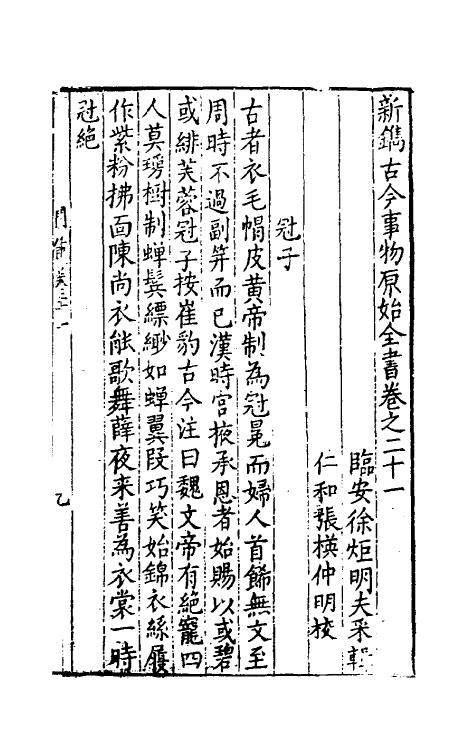 新鐫古今事物原始全書卷之二十一
臨安徐炬明夫采輯
仁和張模仲明校
冠子
古者衣毛帽皮黄帝制為冠冕而婦人首餙無文至
周時不過副笄而已漢時宫掖承恩者始賜以或碧
或緋芙蓉冠子按崔豹古今注曰魏文帝有絶寵四
人莫瑗樹制蟬鬂縹緲如蟬翼段巧笑始錦衣絲履
作紫粉拂面陳尚衣能歌舞薛夜来善為衣裳一時
冠絶